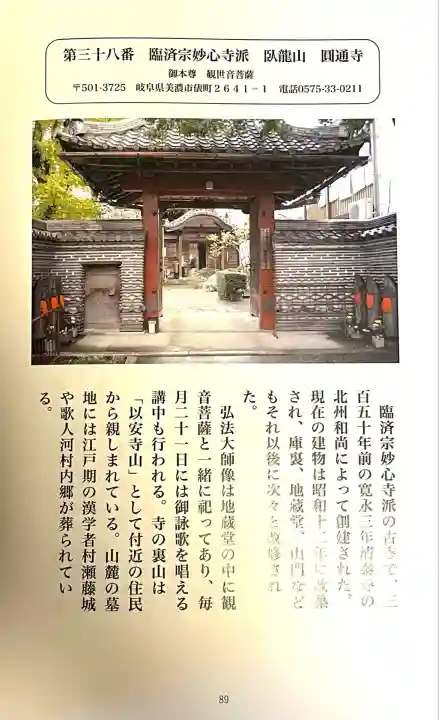 第三十八番　臨済宗妙心寺派　臥龍山　圓通寺
御本尊　観世音菩薩
〒501-3725　岐阜県美濃市俵町２６４１－１　電話0575-33-0211
臨済宗妙心寺派の古寺で、三
百五十年前の寛永三年清泰寺の
北州和尚によって創建された。
現在の建物は昭和十二年に改築
され、庫裏、地蔵堂、山門など
もそれ以後に次々と改修され
た。
弘法大師像は地蔵堂の中に観
音菩薩と一緒に祀ってあり、毎
月二十一日には御詠歌を唱える
講中も行われる。寺の裏山は
「以安寺山」として付近の住民
から親しまれている。山麓の墓
地には江戸期の漢学者村瀬藤城
や歌人河村内郷が葬られてい
る。
89